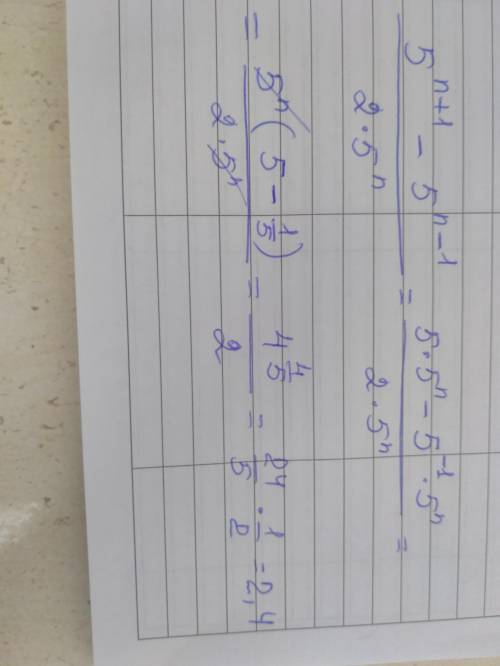 (5^{n+1} - 5^{n-1})/(2·5^n) = (5·5^n - 5^{-1}·5^n)/(2·5^n) =
= 5^n(5 - 1/5)/(2·5^n) = (4 4/5)/2 = 24/5 · 1/2 = 2,4